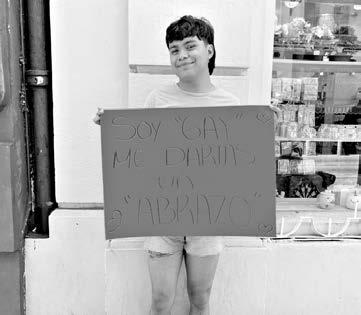 SOY "GAY"
ME DARIAS
UN
"ABRAZO"